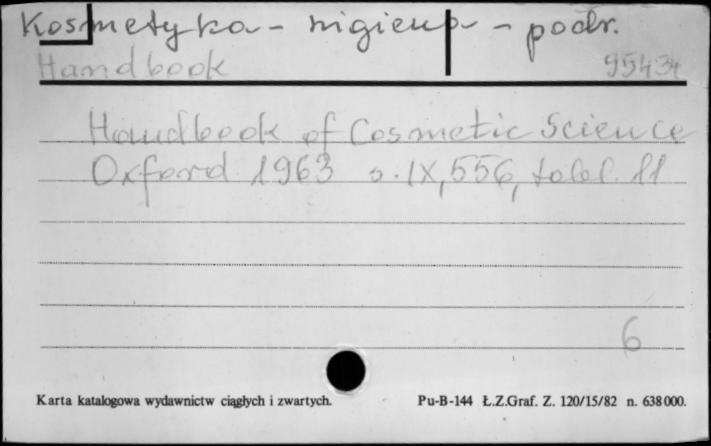 Kosmetyka - higiena - podr.
Handbook 95434
Handbook of Cosmetic Science
Oxford 1963 s. IX, 556, tabl. 11
6
Karta katalogowa wydawnictw ciągłych i zwartych. Pu-B-144 Ł.Z.Graf. Z. 120/15/82 n. 638000.